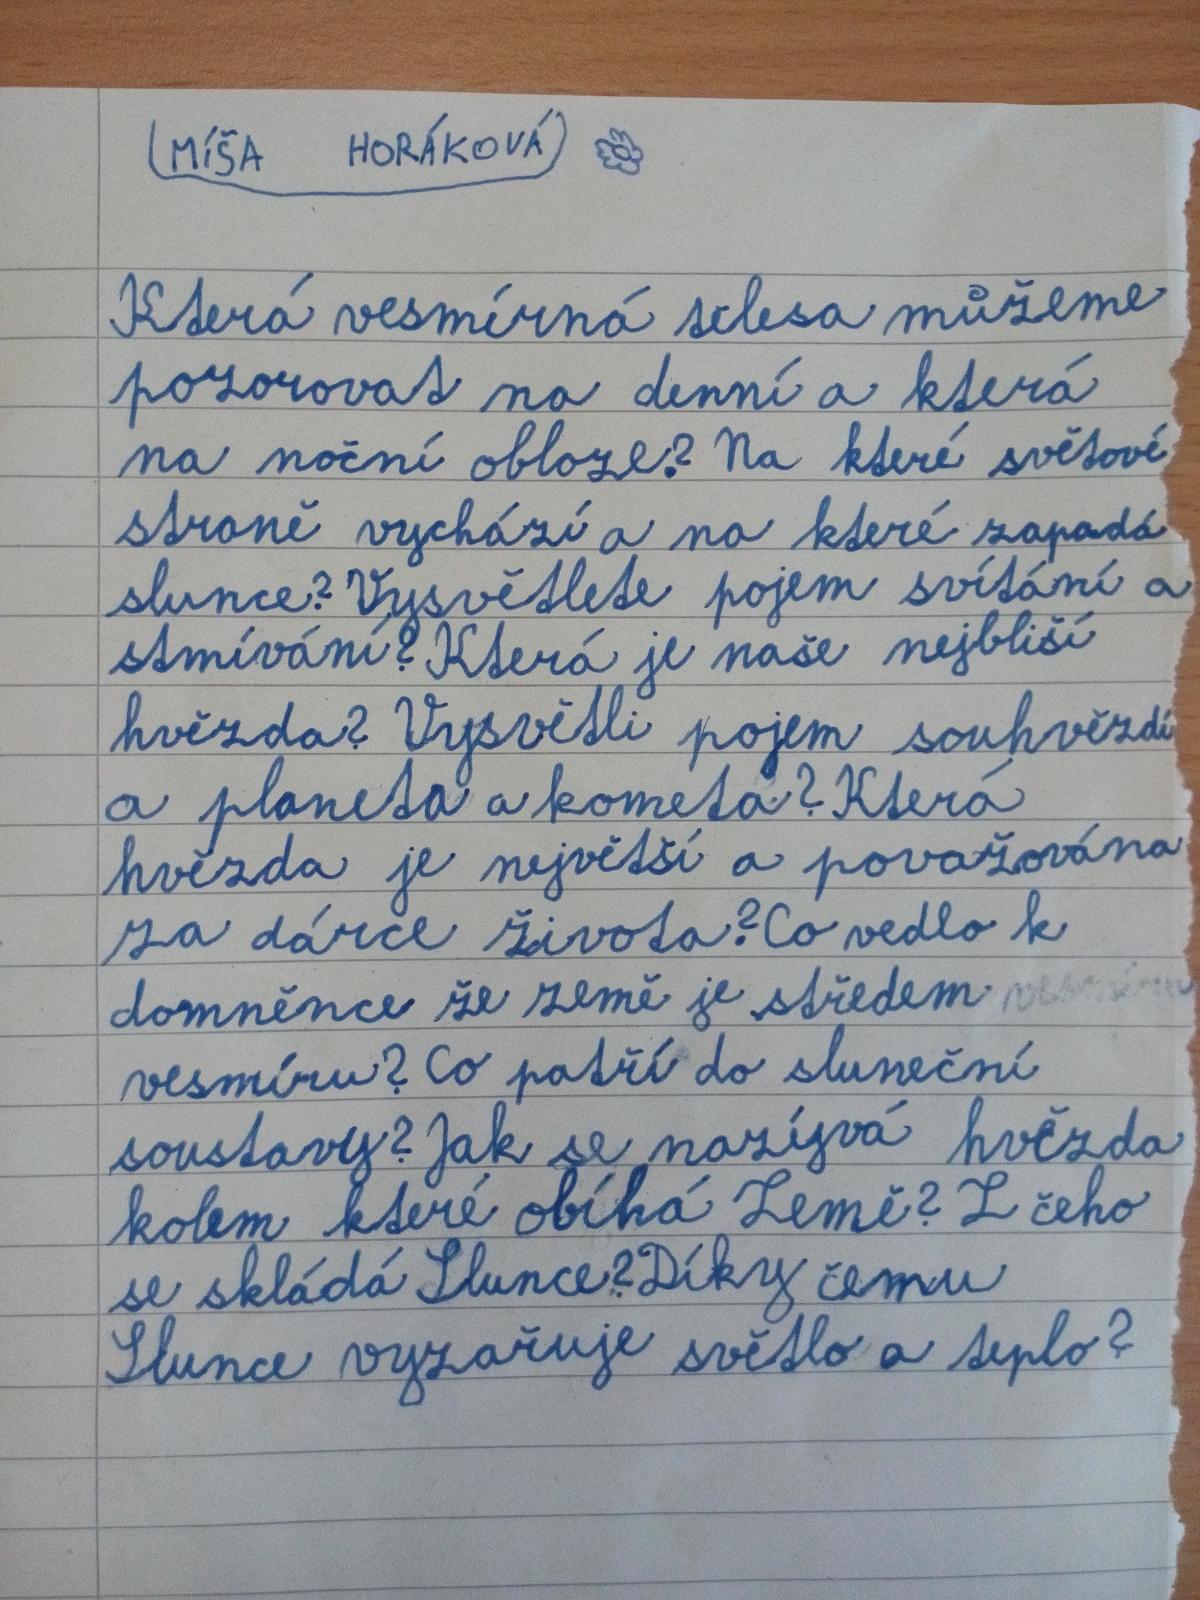 (MÍŠA HORÁKOVÁ)
Která vesmírná tělesa můžeme
pozorovat na denní a která
na noční obloze? Na které světové
straně vychází a na které zapadá
slunce? Vysvětlete pojem svítání a
stmívání? Která je naše nejbliší
hvězda? Vysvětli pojem souhvězdí
a planeta a kometa? Která
hvězda je největší a považována
za dárce života? Co vedlo k
domněnce že země je středem vesmíru
vesmíru? Co patří do sluneční
soustavy? Jak se nazívá hvězda
kolem které obíhá Země? Z čeho
se skládá Slunce? Díky čemu
Slunce vyzařuje světlo a teplo?